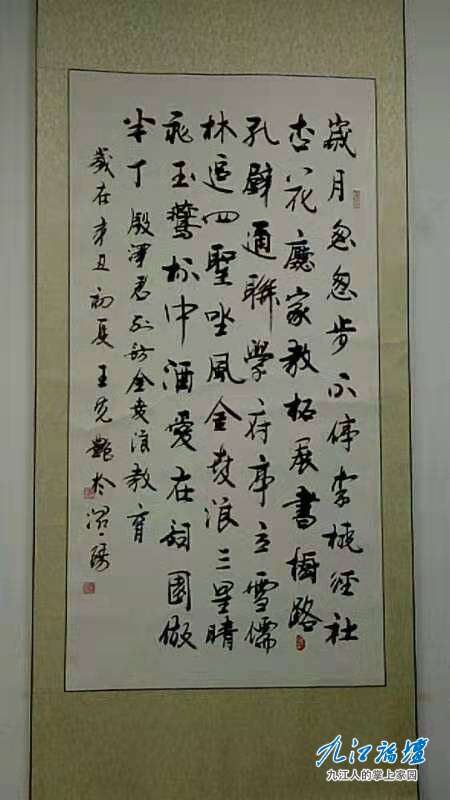 歲月匆匆步不停李桃徑社
杏花廳家教拓展書櫥路
孔壁通聯學府亭立雪儒
林追四聖坐風金麥浪三星晴
飛玉鶩杯中酒愛在詞園做
半丁 殿澤君到訪金麥浪教育
歲在辛丑初夏王克艷於潯陽
九江論壇
九江人的掌上家园